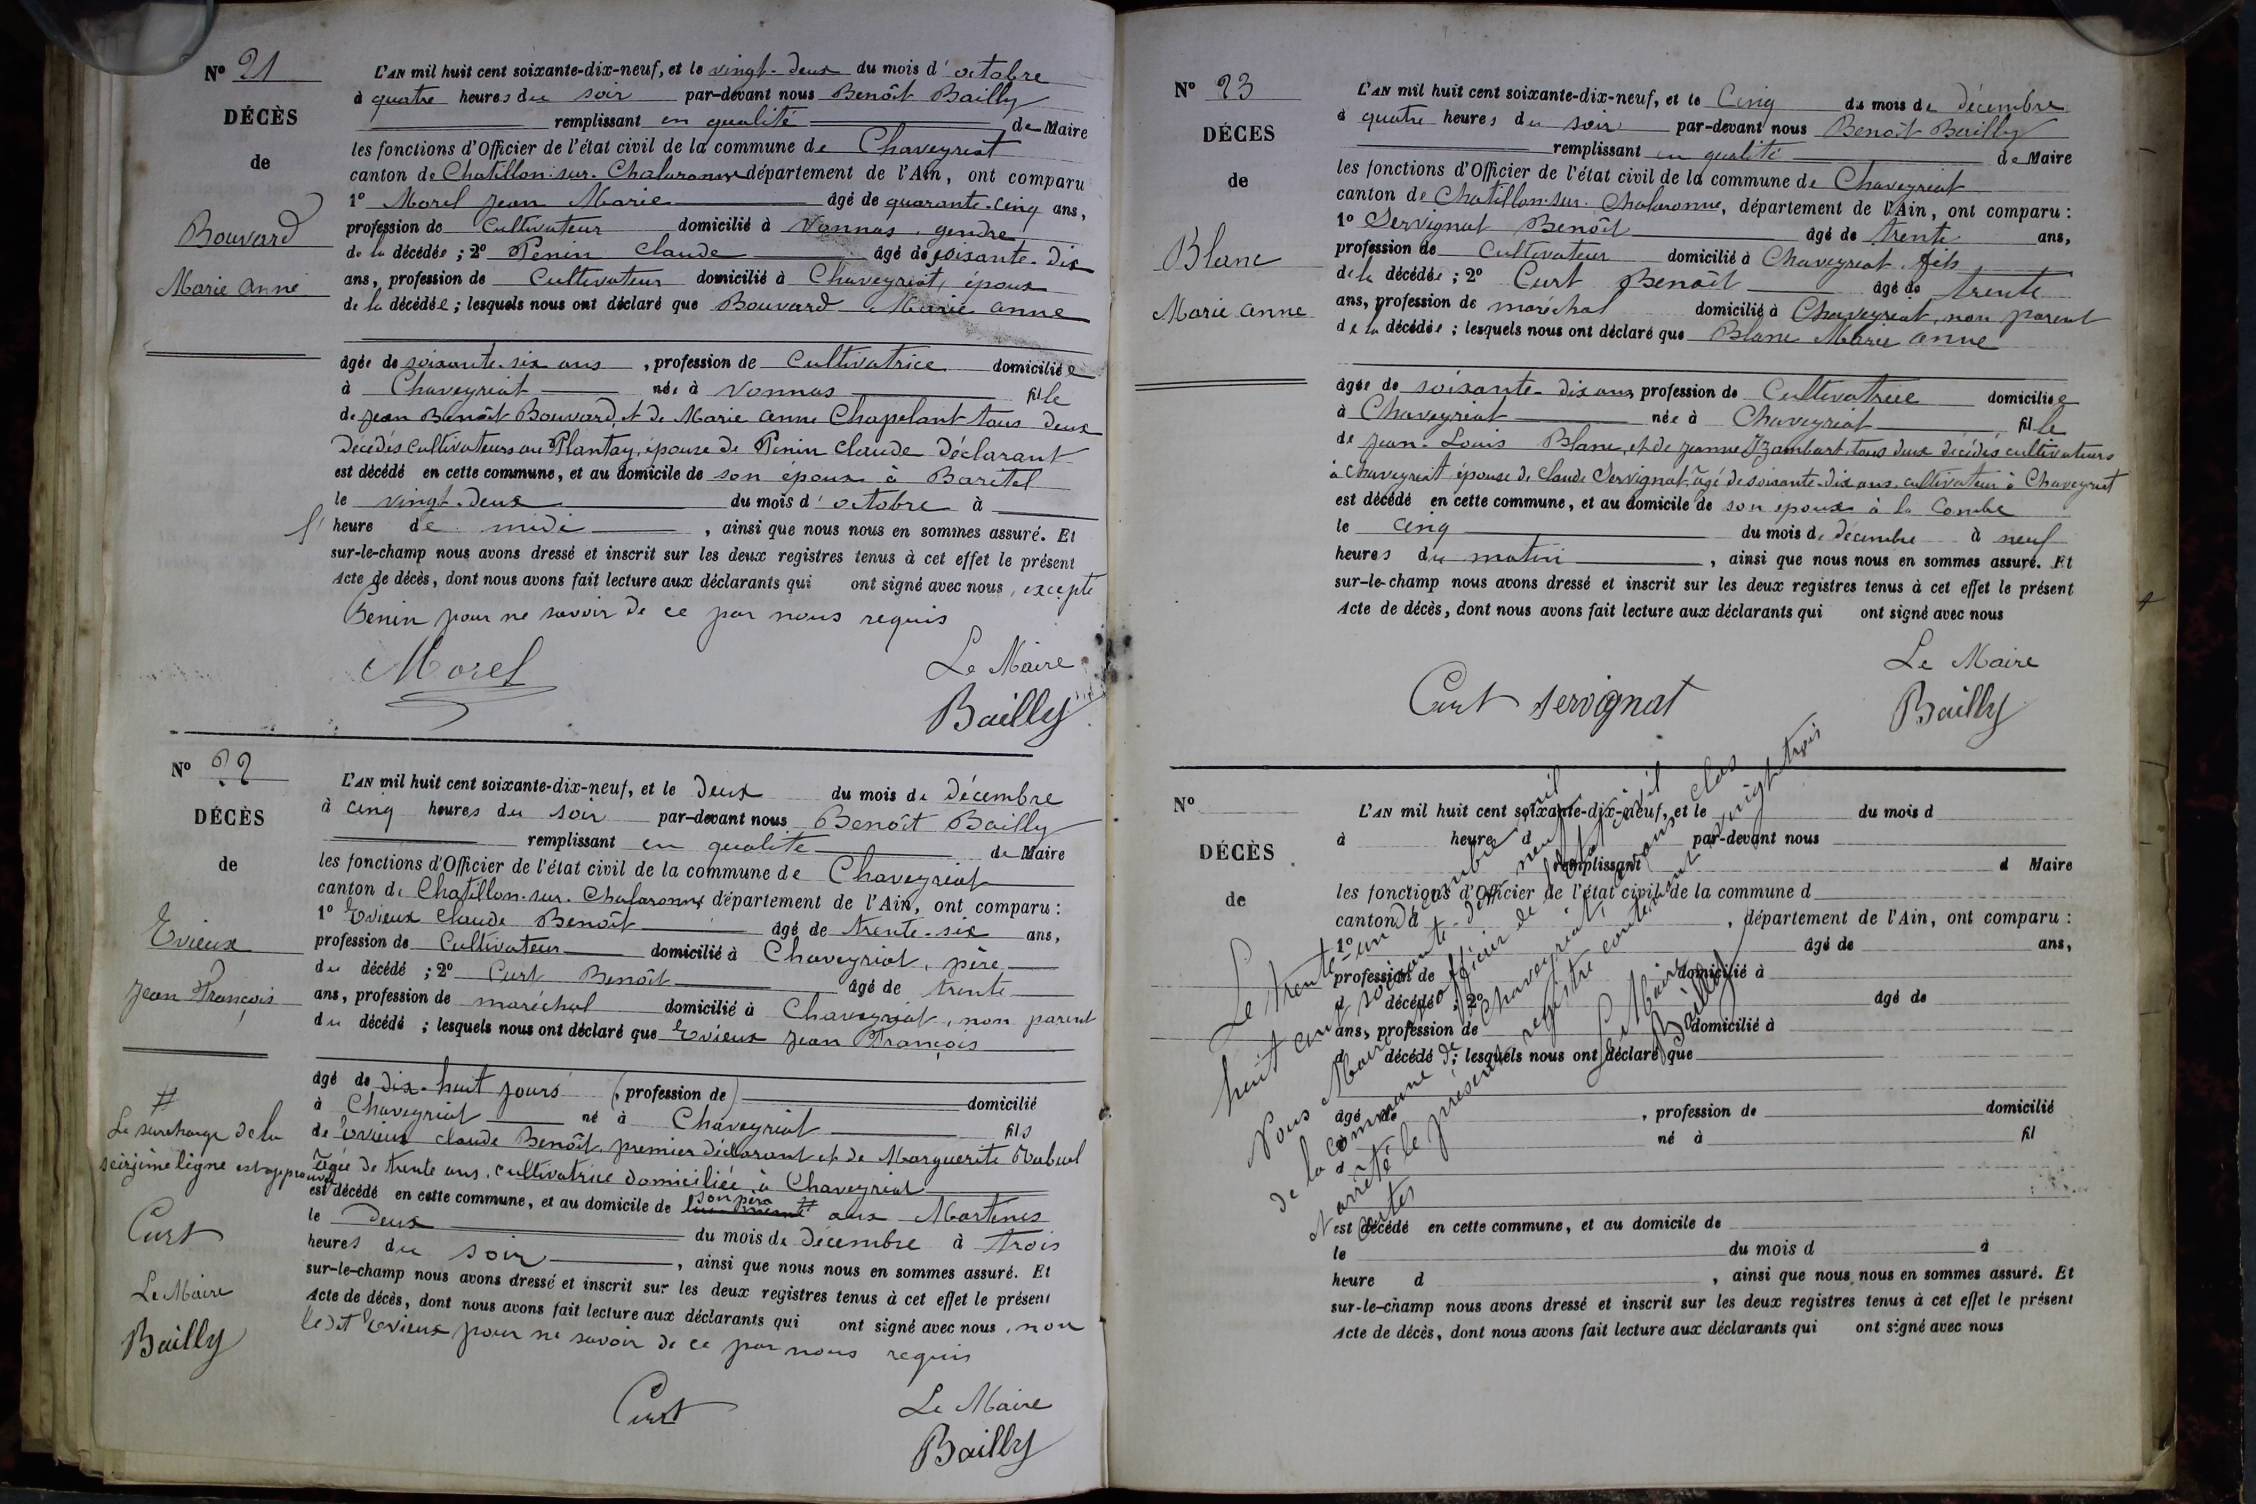 N° 21
DÉCÈS
de
Bouvard
Marie Anne
L'AN mil huit cent soixante-dix-neuf, et le vingt-deux du mois d'octobre
à quatre heures du soir par-devant nous Benoît Bailly
remplissant en qualité de Maire
les fonctions d'Officier de l'état civil de la commune de Chaveyriat
canton de Chatillon-sur-Chalaronne département de l'Ain, ont comparu
1° Morel Jean Marie âgé de quarante-cinq ans,
profession de Cultivateur domicilié à Vonnas, gendre
de la décédée ; 2° Penin Claude âgé de soixante-dix
ans, profession de Cultivateur domicilié à Chaveyriat, époux
de la décédée ; lesquels nous ont déclaré que Bouvard Marie Anne
âgée de soixante-six ans, profession de Cultivatrice domiciliée
à Chaveyriat née à Vonnas fille
de Jean Benoît Bouvard, et de Marie Anne Chapelant tous deux
décédés cultivateurs au Plantay, épouse de Penin Claude déclarant
est décédé en cette commune, et au domicile de son époux à Baretel
le vingt-deux du mois d'octobre à
l'heure de midi, ainsi que nous nous en sommes assuré. Et
sur-le-champ nous avons dressé et inscrit sur les deux registres tenus à cet effet le présent
Acte de décès, dont nous avons fait lecture aux déclarants qui ont signé avec nous, excepté
Penin pour ne savoir de ce par nous requis
Morel
Le Maire
Bailly
N° 22
DÉCÈS
de
Evieux
Jean François
#
La surcharge de la
seizième ligne est approuvée
Curt
Le Maire
Bailly
L'AN mil huit cent soixante-dix-neuf, et le deux du mois de décembre
à cinq heures du soir par-devant nous Benoît Bailly
remplissant en qualité de Maire
les fonctions d'Officier de l'état civil de la commune de Chaveyriat
canton de Chatillon-sur-Chalaronne département de l'Ain, ont comparu :
1° Evieux Claude Benoît âgé de trente-six ans,
profession de Cultivateur domicilié à Chaveyriat, père
du décédé ; 2° Curt Benoît âgé de trente
ans, profession de maréchal domicilié à Chaveyriat, non parent
du décédé ; lesquels nous ont déclaré que Evieux Jean François
âgé de dix-huit jours (, profession de) domicilié
à Chaveyriat né à Chaveyriat fils
de Evieux Claude Benoît, premier déclarant et de Marguerite
âgée de trente ans, cultivatrice domiciliée à Chaveyriat
est décédé en cette commune, et au domicile de son père # aux Martines
le deux du mois de décembre à trois
heures du soir, ainsi que nous nous en sommes assuré. Et
sur-le-champ nous avons dressé et inscrit sur les deux registres tenus à cet effet le présent
Acte de décès, dont nous avons fait lecture aux déclarants qui ont signé avec nous, non
ledit Evieux pour ne savoir de ce par nous requis
Curt
Le Maire
Bailly
N° 23
DÉCES
de
Blanc
Marie Anne
L'AN mil huit cent soixante-dix-neuf, et le Cinq du mois de décembre
à quatre heures du soir par-devant nous Benoît Bailly
remplissant en qualité de Maire
les fonctions d'Officier de l'état civil de la commune de Chaveyriat
canton de Chatillon-sur-Chalaronne, département de l'Ain, ont comparu :
1° Servignat Benoît âgé de trente ans,
profession de Cultivateur domicilié à Chaveyriat, fils
de la décédée ; 2° Curt Benoît âgé de trente
ans, profession de maréchal domicilié à Chaveyriat, non parent
de la décédée ; lesquels nous ont déclaré que Blanc Marie Anne
âgée de soixante-dix ans, profession de Cultivatrice domiciliée
à Chaveyriat née à Chaveyriat fille
de Jean-Louis Blanc, et de Jeanne Izambart, tous deux décédés cultivateurs
à Chaveyriat épouse de Claude Servignat âgé de soixante-dix ans, cultivateur à Chaveyriat
est décédé en cette commune, et au domicile de son époux à la Combe
le cinq du mois de décembre à neuf
heures du matin, ainsi que nous nous en sommes assuré. Et
sur-le-champ nous avons dressé et inscrit sur les deux registres tenus à cet effet le présent
Acte de décès, dont nous avons fait lecture aux déclarants qui ont signé avec nous
Curt Servignat
Le Maire
Bailly
N°
DÉCÈS
de
L'AN mil huit cent soixante-dix-neuf, et le du mois d
à heure d par-devant nous
remplissant d Maire
les fonctions d'Officier de l'état civil de la commune d
canton d , département de l'Ain, ont comparu :
1° âgé de ans,
profession de domicilié à
d décédé ; 2° âgé de
ans, profession de domicilié à
d décédé ; lesquels nous ont déclaré que
âgé de , profession de domicilié
à né à fil
d
est décédé en cette commune, et au domicile de
le du mois d à
heure d , ainsi que nous nous en sommes assuré. Et
sur-le-champ nous avons dressé et inscrit sur les deux registres tenus à cet effet le présent
Acte de décès, dont nous avons fait lecture aux déclarants qui ont signé avec nous
Le trente-un décembre mil
huit cent soixante-dix-neuf
Nous Maire, officier de l'état civil
de la commune de Chaveyriat, avons clos
et arrêté le présent registre contenant vingt-trois
actes
Le Maire
Bailly